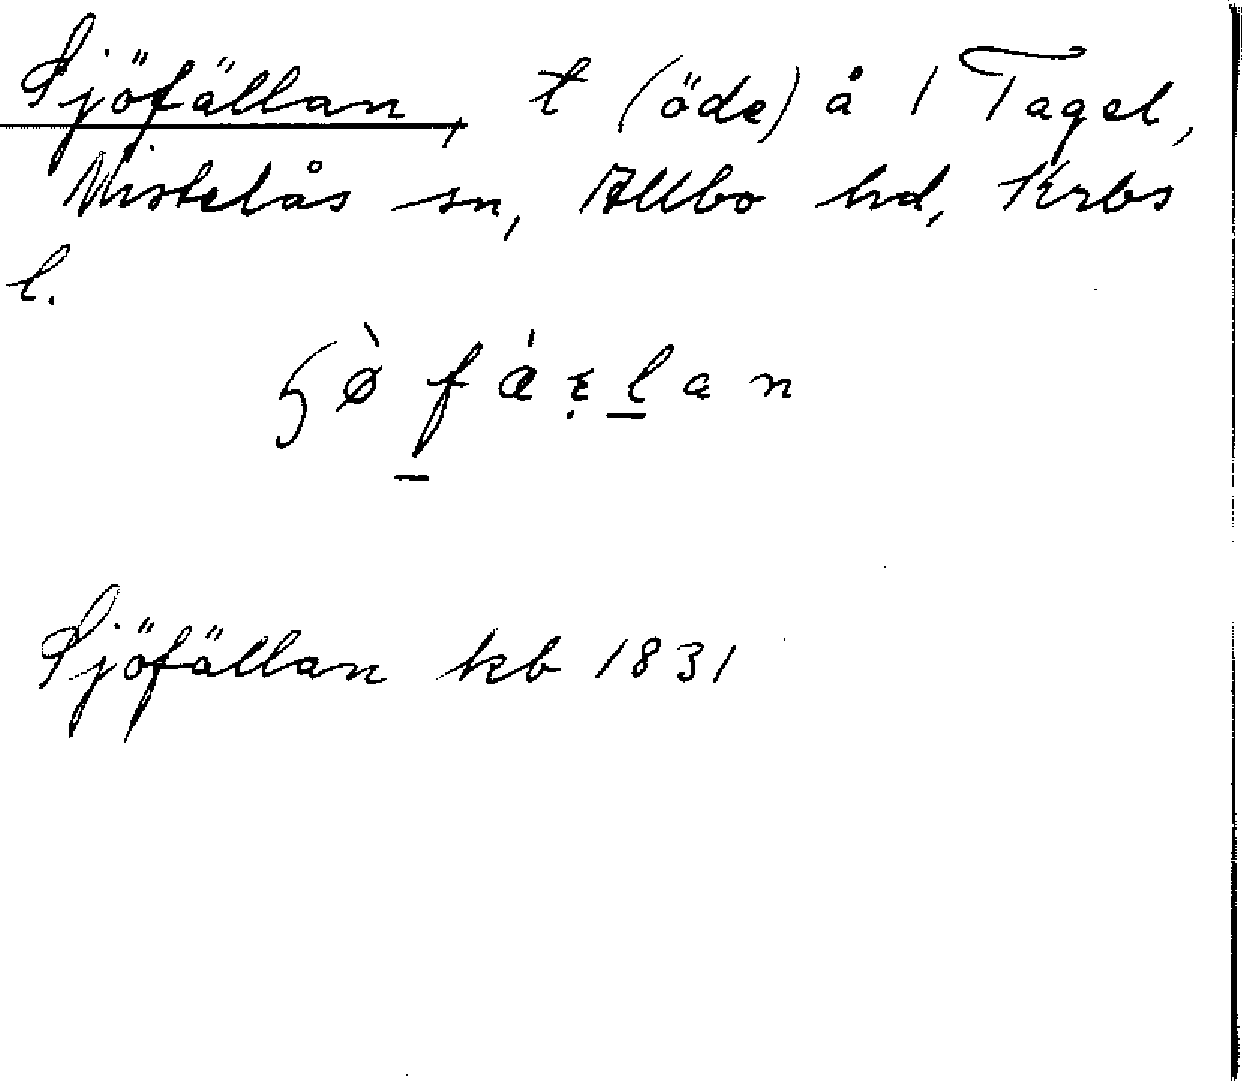 Sjöfällan, t (öde) å 1 Tagel,
Mistelås sn, Allbo hd, Krbs
l.
Sjöfällan kb 1831